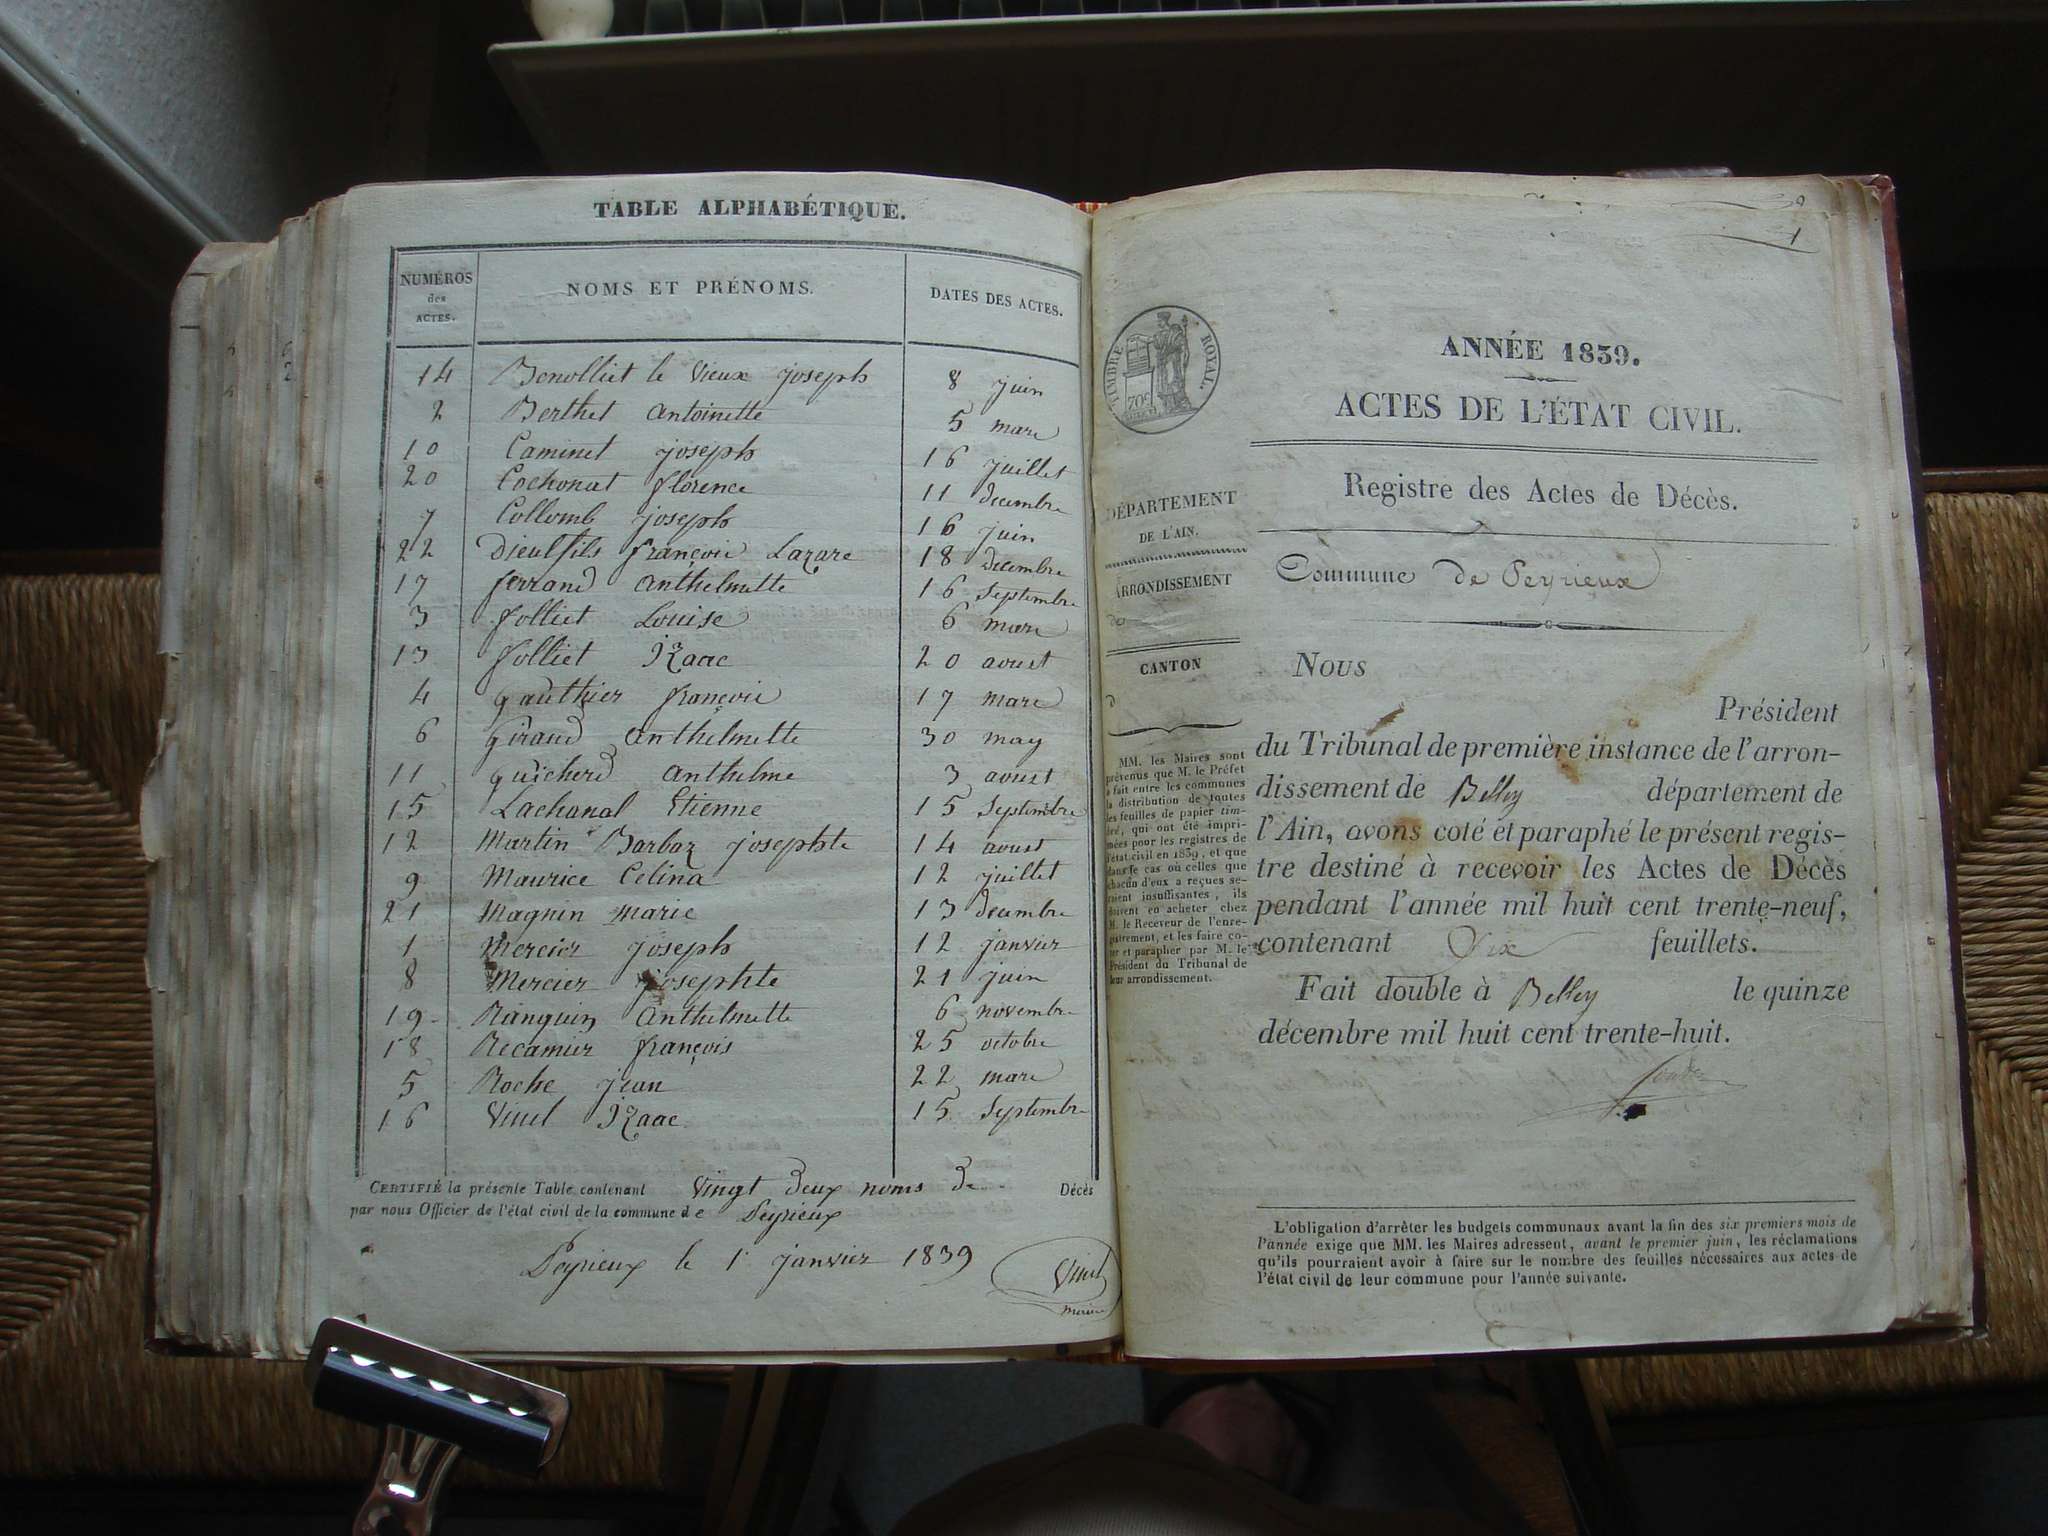 TABLE ALPHABÉTIQUE.
NUMÉROS des ACTES. NOMS ET PRÉNOMS. DATES DES ACTES.
14 Benolliet le vieux joseph 8 juin
2 Berthet antoinette 5 mars
10 Caminet joseph 16 juillet
20 Cochonat florence 11 decembre
7 Collomb joseph 16 juin
22 Dieulfils françois Lazare 18 decembre
17 ferrand anthelmette 16 septembre
3 folliet Louise 6 mars
13 folliet Izaac 20 aoust
4 gauthier françois 17 mars
6 giraud anthelmette 30 may
11 guicherd anthelme 3 aoust
15 Lachanal Etienne 15 septembre
12 Martin Barbaz josephte 14 aoust
9 Maurice Celina 12 juillet
21 Magnin marie 13 decembre
1 Mercier joseph 12 janvier
8 Mercier josephte 21 juin
19 Ranguin anthelmette 6 novembre
18 Recamier françois 25 octobre
5 Roche jean 22 mars
16 Vinel Izaac 15 septembre
CERTIFIÉ la présente Table contenant vingt deux noms de Décès
par nous Officier de l'état civil de la commune de Peyrieux
Peyrieux le 1 janvier 1839
Vinel
1
TIMBRE ROYAL.
70c
ANNÉE 1839.
ACTES DE L'ÉTAT CIVIL.
Registre des Actes de Décès.
DÉPARTEMENT
DE L'AIN.
ARRONDISSEMENT
de
CANTON
d
Commune de Peyrieux
MM. les Maires sont
prévenus que M. le Préfet
a fait entre les communes
la distribution de toutes
les feuilles de papier tim-
bré, qui ont été impri-
mées pour les registres de
l'état civil en 1839, et que
dans le cas où celles que
chacun d'eux a reçues se-
raient insuffisantes, ils
doivent en acheter chez
M. le Receveur de l'enre-
gistrement, et les faire co-
ter et parapher par M. le
Président du Tribunal de
leur arrondissement.
Nous
Président
du Tribunal de première instance de l'arron-
dissement de Belley département de
l'Ain, avons coté et paraphé le présent regis-
tre destiné à recevoir les Actes de Décès
pendant l'année mil huit cent trente-neuf,
contenant Six feuillets.
Fait double à Belley le quinze
décembre mil huit cent trente-huit.
L'obligation d'arrêter les budgets communaux avant la fin des six premiers mois de
l'année exige que MM. les Maires adressent, avant le premier juin, les réclamations
qu'ils pourraient avoir à faire sur le nombre des feuilles nécessaires aux actes de
l'état civil de leur commune pour l'année suivante.